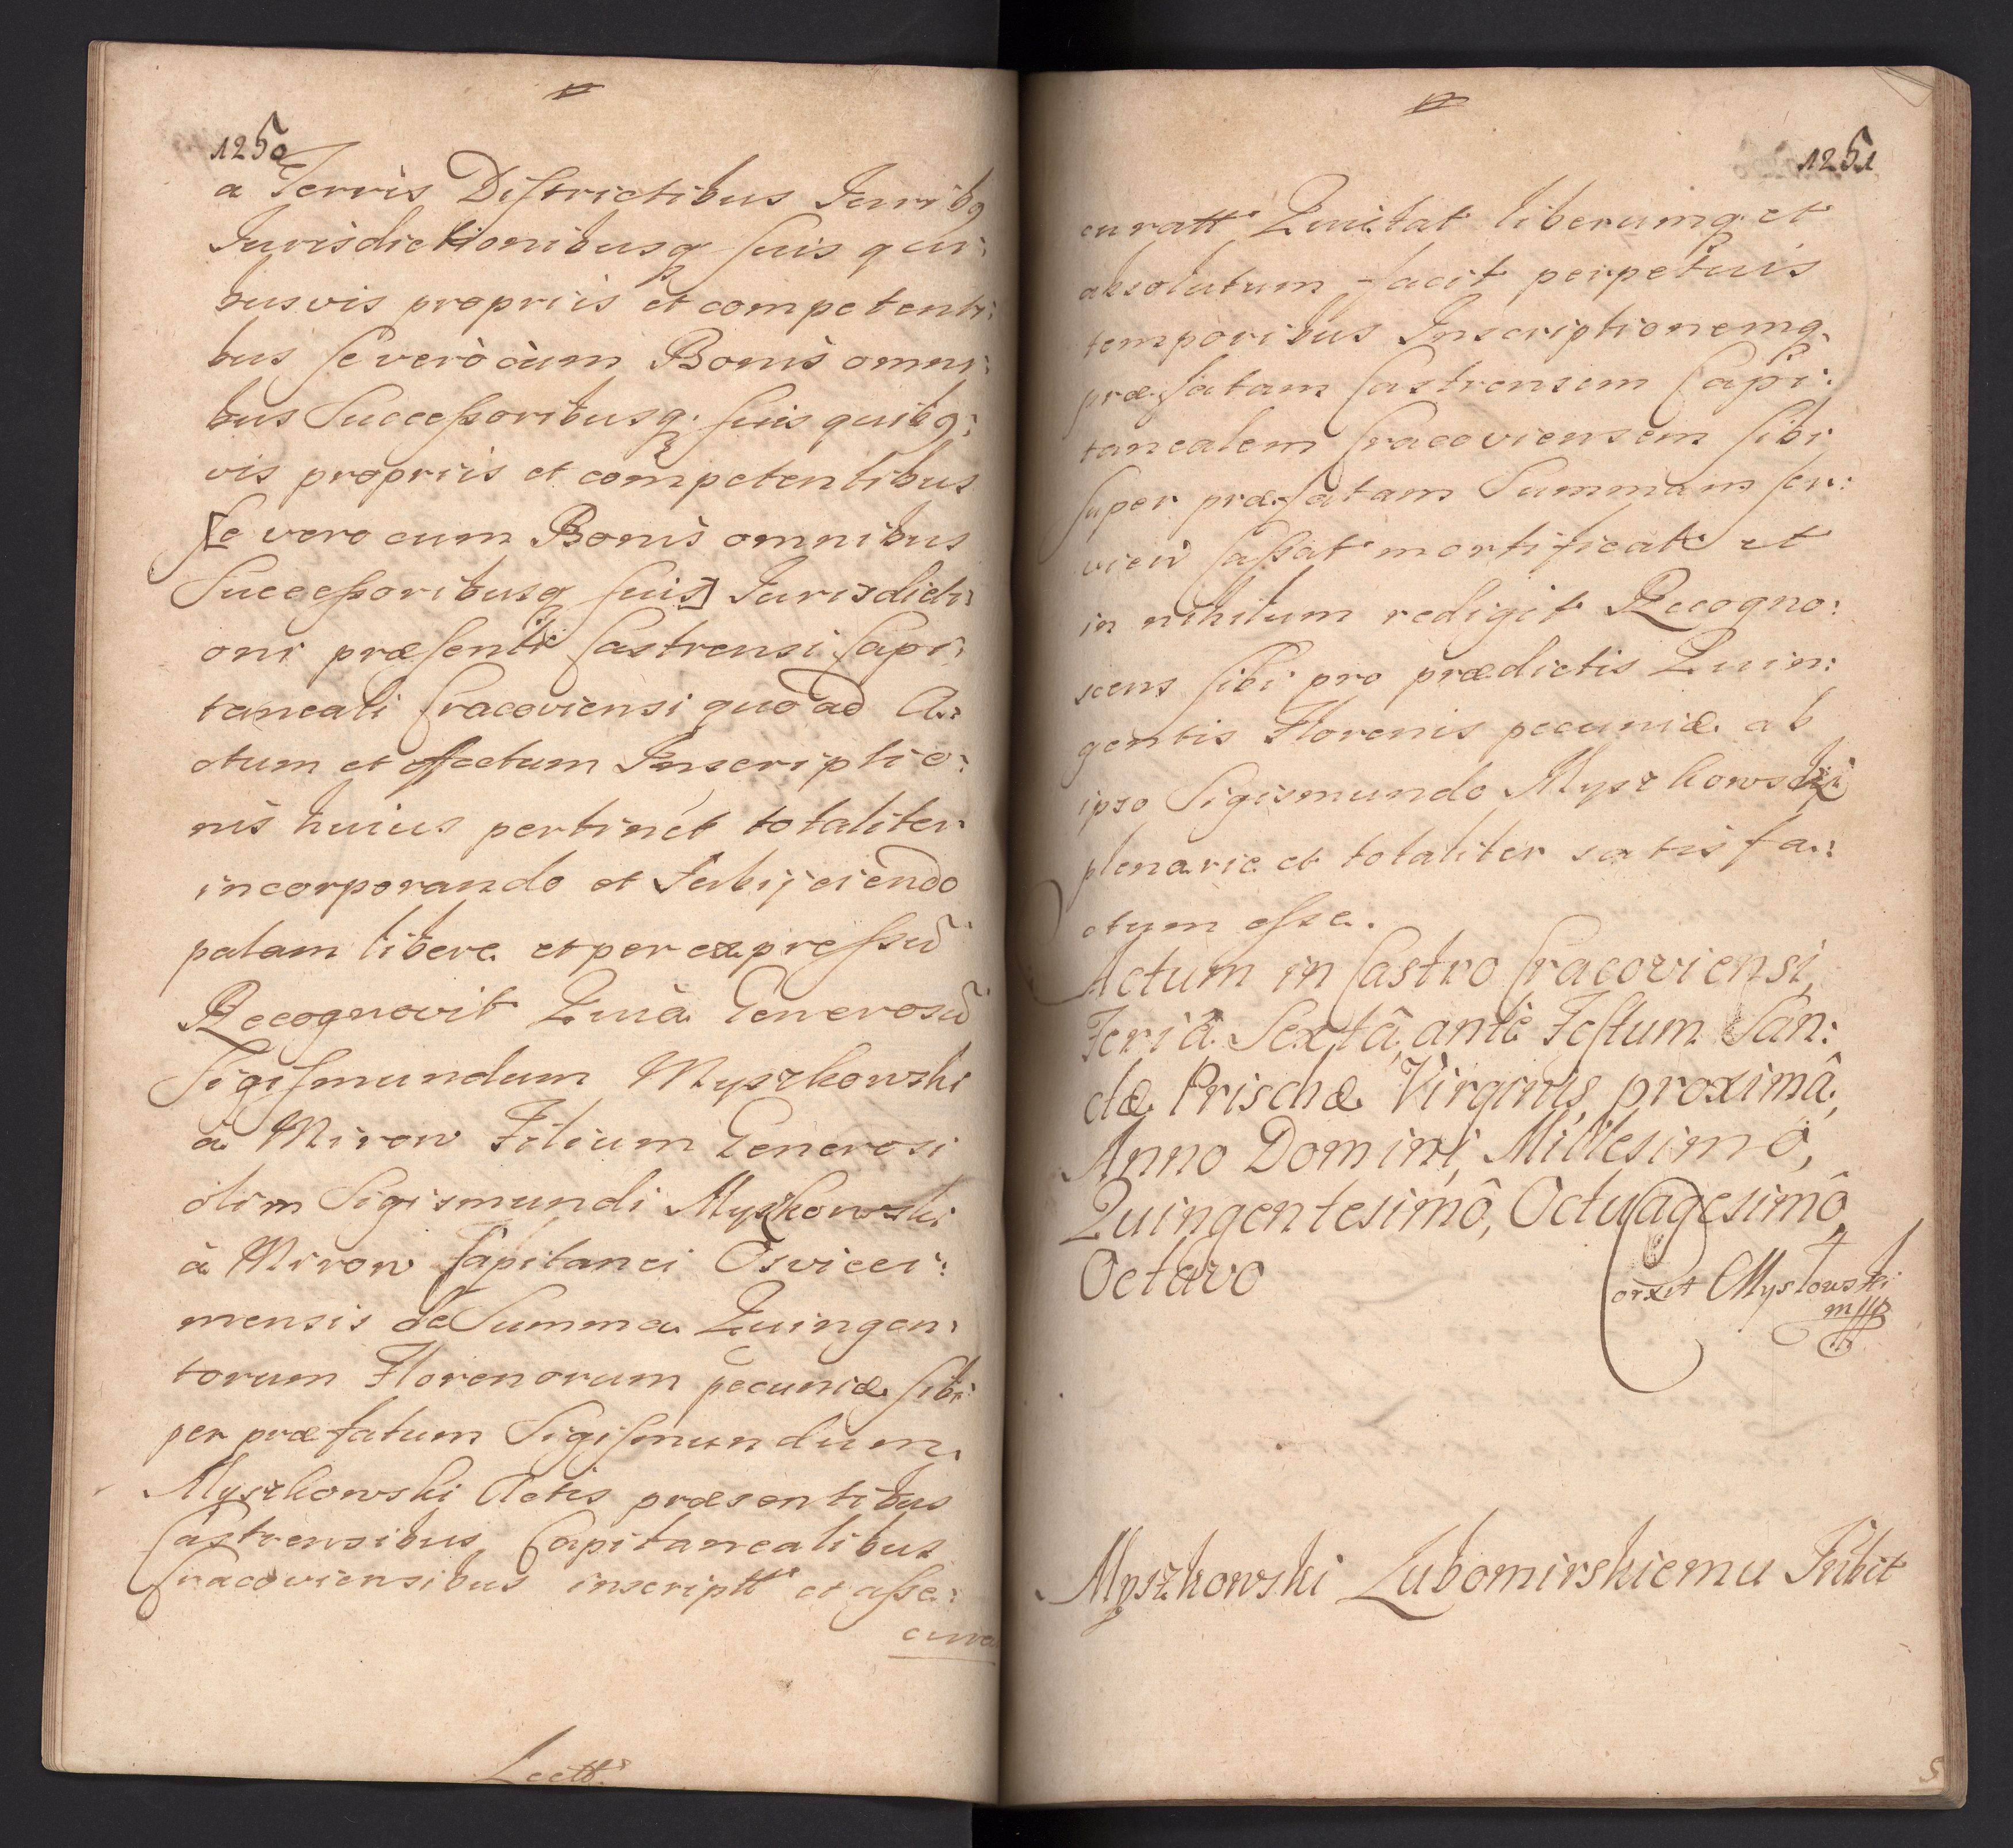 1250
a Terris Districtibus Juribq
Jurisdictionibusq suis qui:
busvis propriis et competenti:
bus se verò cùm Bonis omni:
bus Successoribusq suis quibq:
vis propriis et competentibus
[se vero cum Bonis omnibus
Successoribusq suis] Jurisdicti:
oni præsenti Castrensi Capi:
taneali Cracoviensi quo ad A:
ctum et effectum Inscriptio:
nis huius pertinet totaliter
incorporando et subijciendo
palam libere et per expressũ
Recognovit Quia Generosũ
Sigismundum Myszkowski
à Mirow Filium Generosi
olim Sigismundi Myszkowski
à Mirow Capitanei Osvieci:
mensis de Summa Quingen:
torum Florenorum pecuniæ sibi
per præfatum Sigismundum
Myszkowski Actis præsentibus
Castrensibus Capitanealibus
Cracoviensibus inscriptt et asse:
cura
Lectt
1251
curatt Quietat liberumq et
absolutum facit perpetuis
temporibus Inscriptionemq
præfatam Castrensem Capi:
tanealem Cracoviensem sibi
super præfatam Summam ser:
vien Cassat mortificat et
in nihilum redigit Recogno:
scens sibi pro prædictis Quin:
gentis Florenis pecuniæ ab
ipso Sigismundo Myszkowski
plenarie et totaliter satisfa:
ctum esse.
Actum in Castro Cracoviensi,
Feriâ Sextâ antè Festum San:
ctæ Prischæ Virginis proximâ,
Anno Domini, Millesimô,
Quingentesimô, Octuagesimô,
Octavo
Corxit Mysłowski
mpp
Myszkowski Lubomirskiemu Inhibit